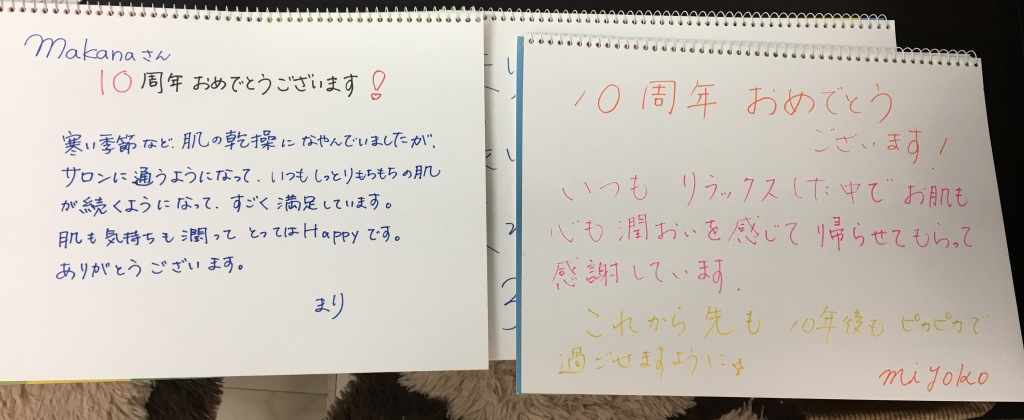 makanaさん
10周年 おめでとうございます!
寒い季節など、肌の乾操になやんでいましたが、
サロンに通うようになって、いつもしっとりもちもちの肌
が続くようになって、すごく満足しています。
肌も気持ちも潤って とってはHappyです。
ありがとうございます。
まり
10周年 おめでとう
ございます!
いつも リラックスした中で お肌も
心も潤おいを感じて 帰らせてもらって
感謝しています.
これから先も 10年後も ピカピカで
過ごせますように☆
miyoko